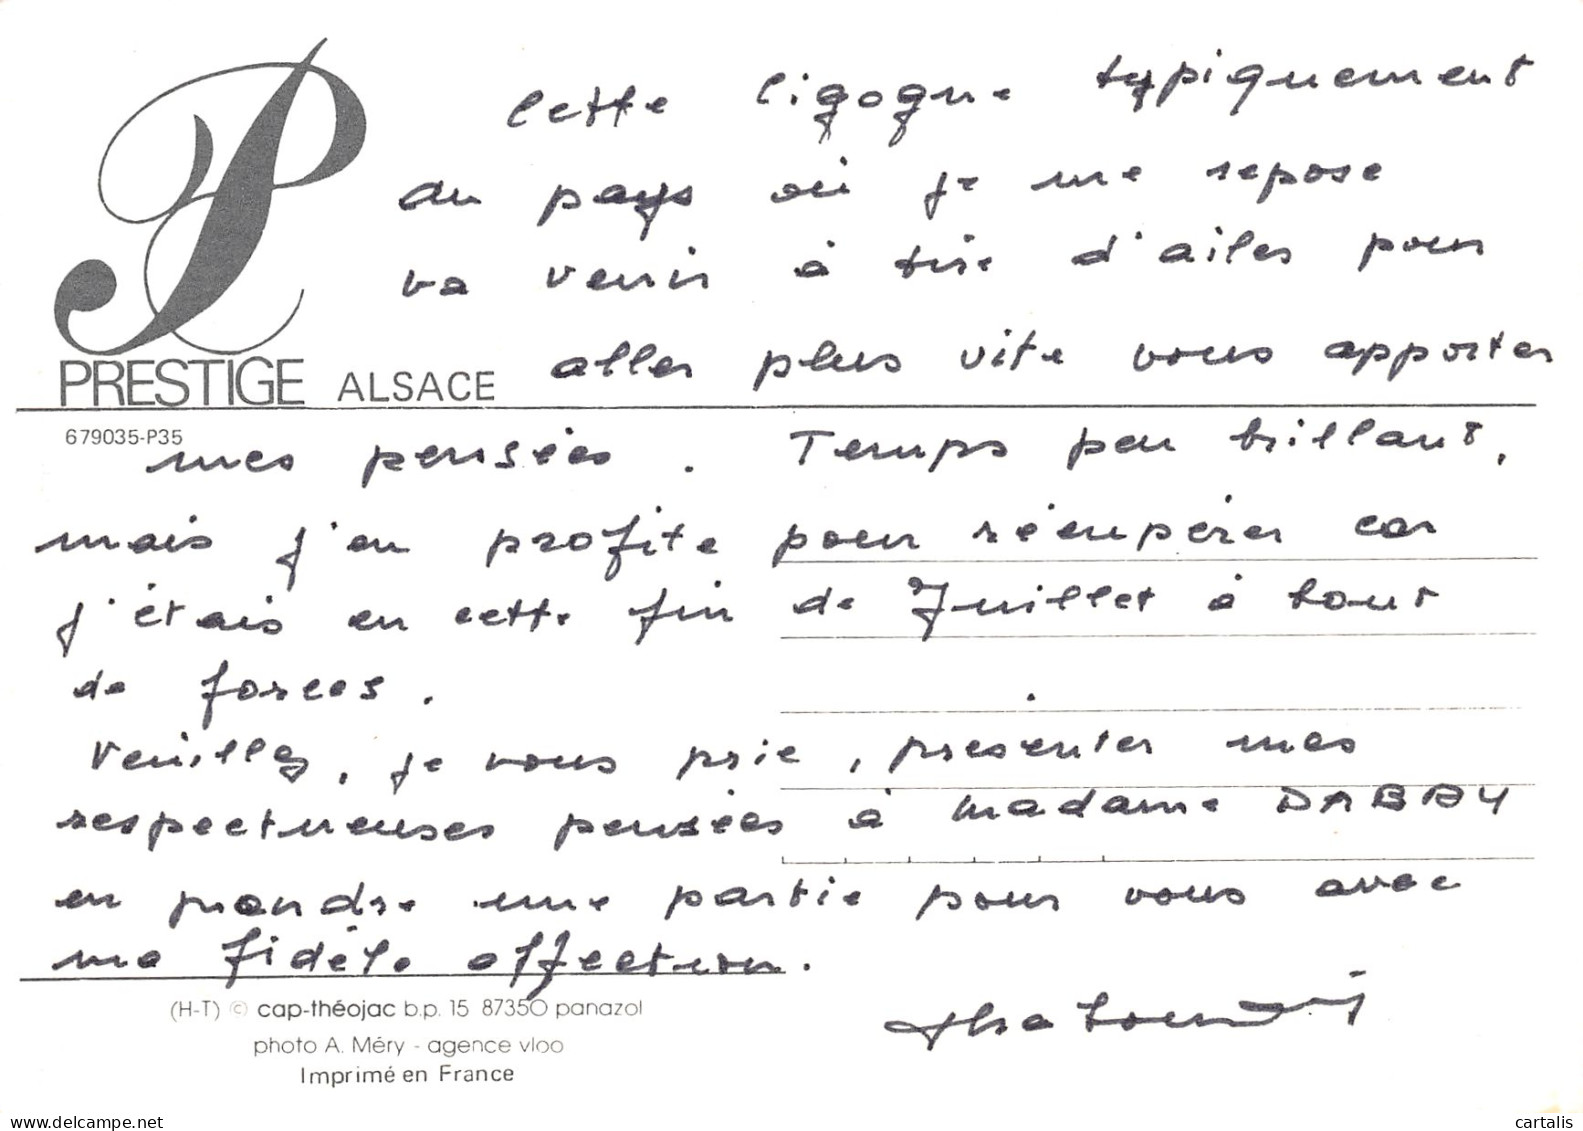 Cette cigogne typiquement
du pays où je me repose
va venir à tire d'ailes pour
aller plus vite vous apporter
PRESTIGE ALSACE
679035-P35
mes pensées. Temps peu brillant,
mais j'en profite pour récupérer car
j'étais en cette fin de Juillet à bout
de forces.
Veuillez, je vous prie, présenter mes
respectueuses pensées à Madame DABBY
en prendre une partie pour vous avec
ma fidèle affection.
(H-T) © cap-théojac b.p. 15 87350 panazol
photo A. Méry - agence vloo
Imprimé en France
www.delcampe.net
cartalis